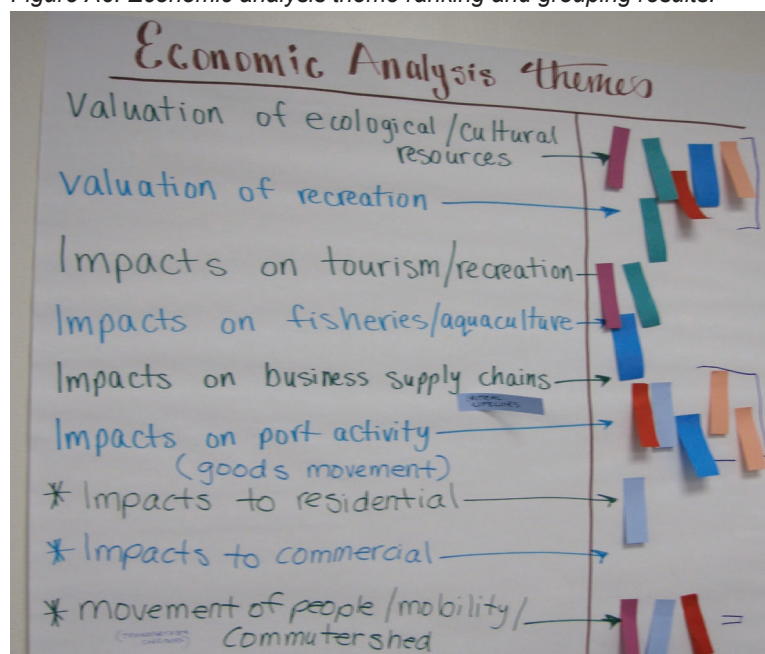 Figure A6. Economic analysis theme ranking and grouping results.
Economic Analysis themes
Valuation of ecological/cultural
resources
Valuation of recreation
Impacts on tourism/recreation
Impacts on fisheries/aquaculture
Impacts on business supply chains
LIFELINES
Impacts on port activity
(goods movement)
* Impacts to residential
* Impacts to commercial
* movement of people/mobility/
Commutershed